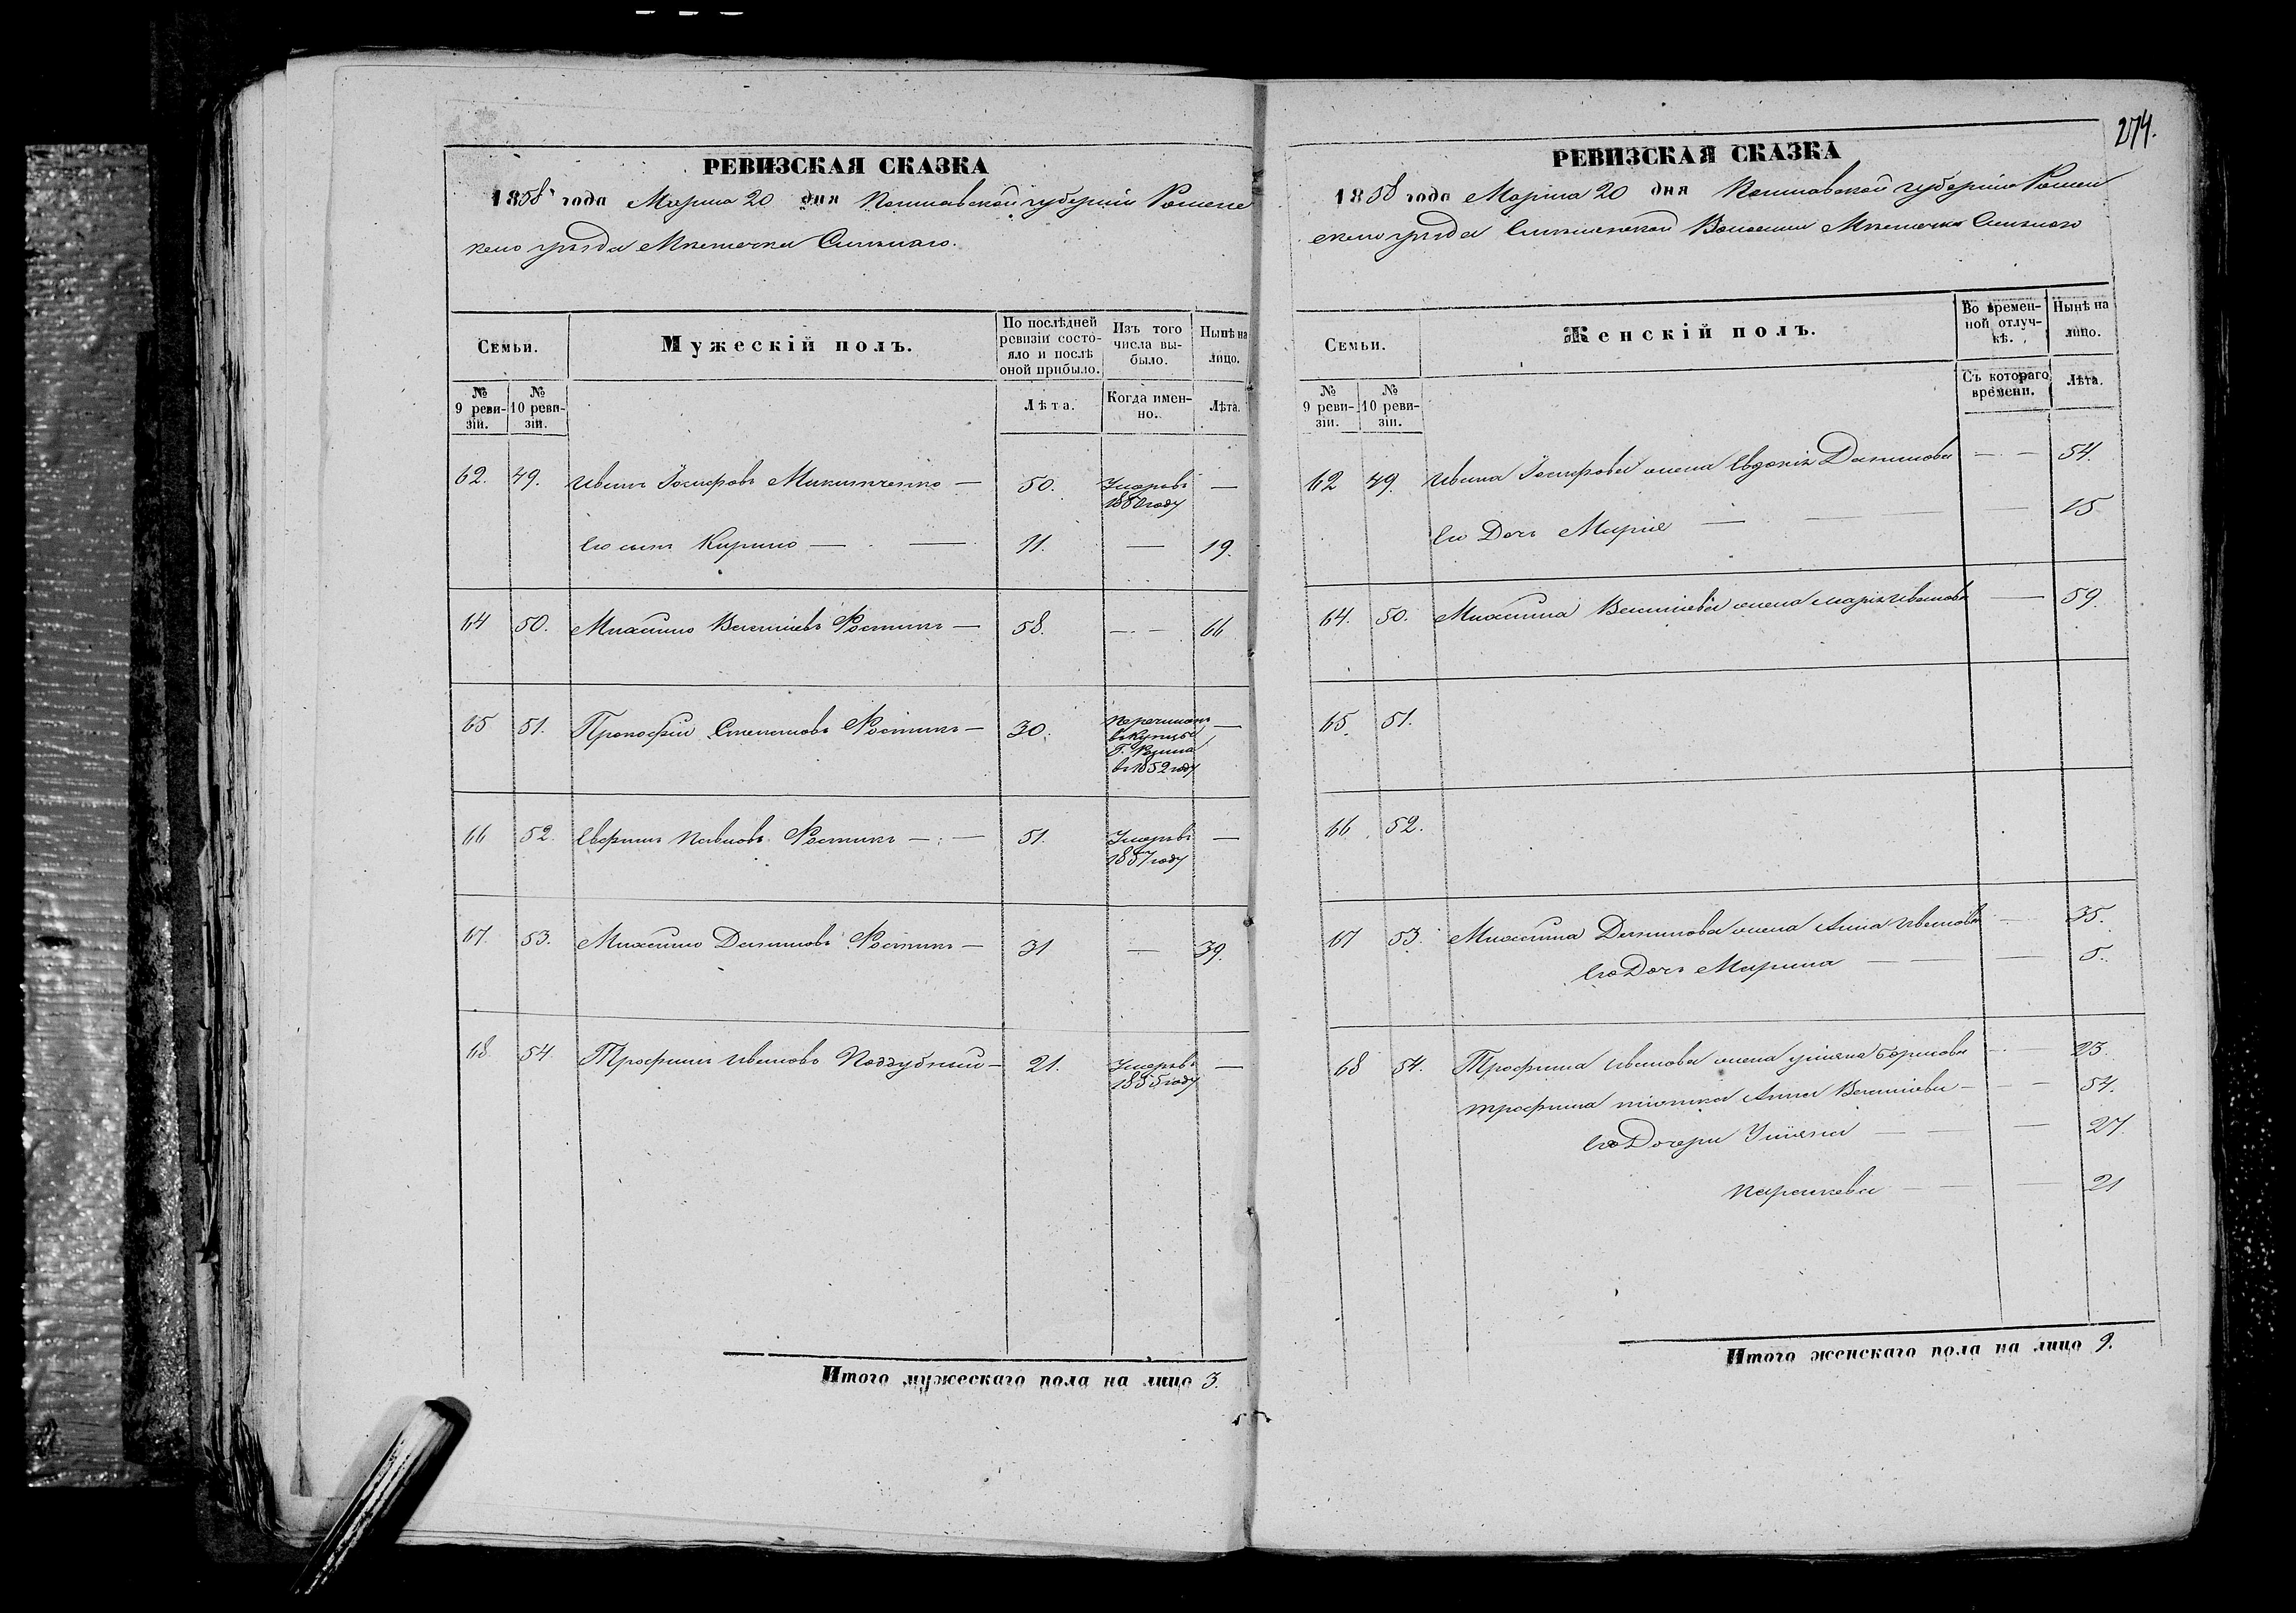 274.
РЕВИЗСКАЯ СКАЗКА
1858 года Марта 20 дня Полтавской губернии Ромен
ского уѣзда Мѣстечка Смѣлаго.
Семьи.
Мужескій полъ.
По послѣдней ревизіи состо-
яло и послѣ оной прибыло.
Изъ того числа вы-
было.
Нынѣ на лицо.
№ 9 реви-
зіи.
№ 10 реви-
зіи.
Лѣта.
Когда имен-
но.
Лѣта.
62. 49. Иванъ Іосифовъ Микитченко — 50. Умеръ въ —
1850 году
Его сынъ Кирило — — 11. — 19.
64 50. Михаило Василіевъ Костикъ — 58. — — 66
65 51. Прокофій Степановъ Костикъ — 30. перечисленъ —
въ купцы
Г.
в 1852 году
66 52. Павловъ Костикъ — — 51. Умеръ въ —
1857 году
67 53. Михаило Даниловъ Костикъ — 31 — 39.
68 54 Трофимъ Ивановъ Поддубный — 21. Умеръ въ —
1855 году
Итого мужескаго пола на лицо 3.
РЕВИЗСКАЯ СКАЗКА
1858 года Марта 20 дня Полтавской губерніи Ромен
скаго уѣзда Смѣлянской Волости Мѣстечка Смѣлаго
Семьи.
Женскій полъ.
Во времен-
ной отлуч-
кѣ.
Нынѣ на лицо.
№ 9 реви-
зіи.
№ 10 реви-
зіи.
Съ котораго времени.
Лѣта.
62 49. Ивана Іосифова жена Евдокія Данилова — — 54.
Его Дочь Марія — — — 15
64. 50. Михаила Василіева жена Марія Иванова — 59.
65. 51.
66. 52.
67 53. Михаила Данилова жена Анна Иванова — 35.
Его Дочь Марина — — — 5.
68 54. Трофима Иванова жена Уліяна Борисова — — 23.
Трофима тіотка Анна Василіева — — — 54.
Её Дочери Уліяна — — — 27.
Параскева — — — 21
Итого женскаго пола на лицо 9.